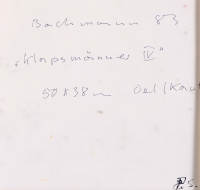 Bachmann 83
"Klapsmänner IV"
50 x 38 cm Oel/Kar
S.